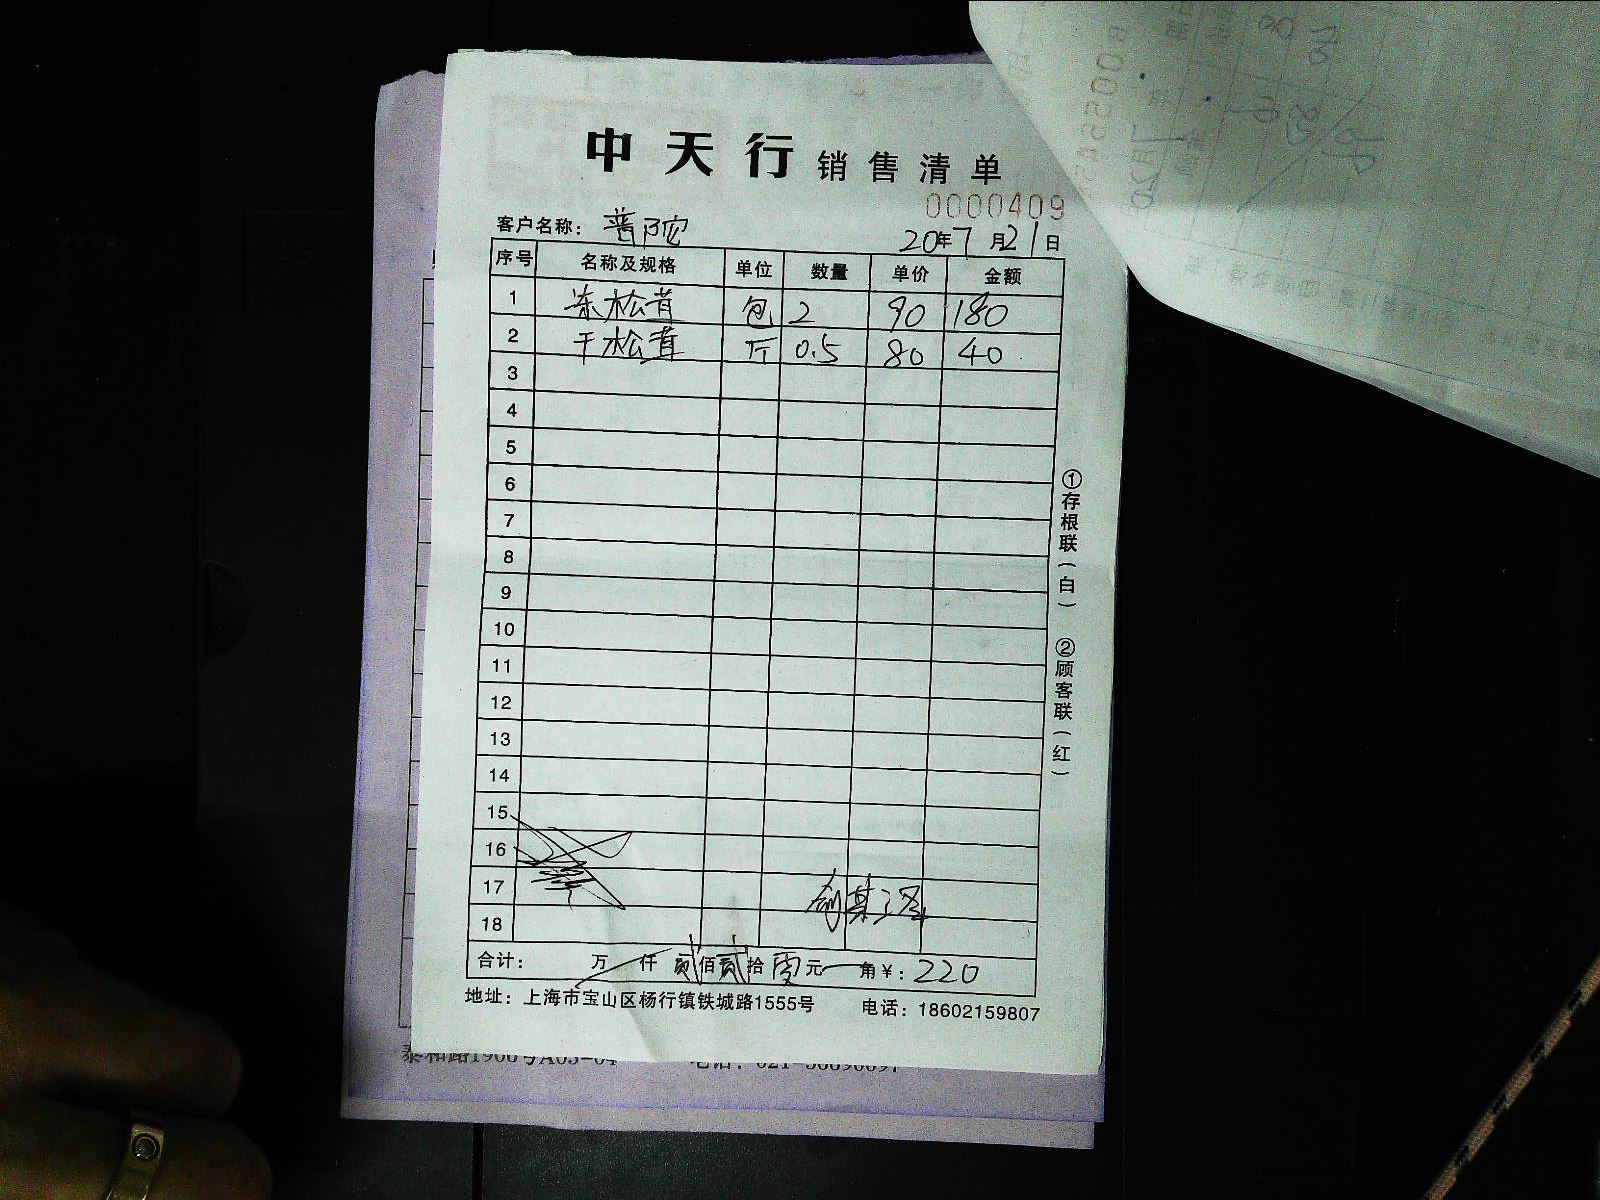 中天行销售清单
0000409
客户名称： 普陀 20年7月21日
序号 名称及规格 单位 数量 单价 金额
1 冻松茸 包 2 90 180
2 干松茸 斤 0.5 80 40
3
4
5
6
7
8
9
10
11
12
13
14
15
16
17
18
合计： 万 仟 贰佰贰拾零元 角¥：220
地址：上海市宝山区杨行镇铁城路1555号 电话：18602159807
①存根联（白）
②顾客联（红）